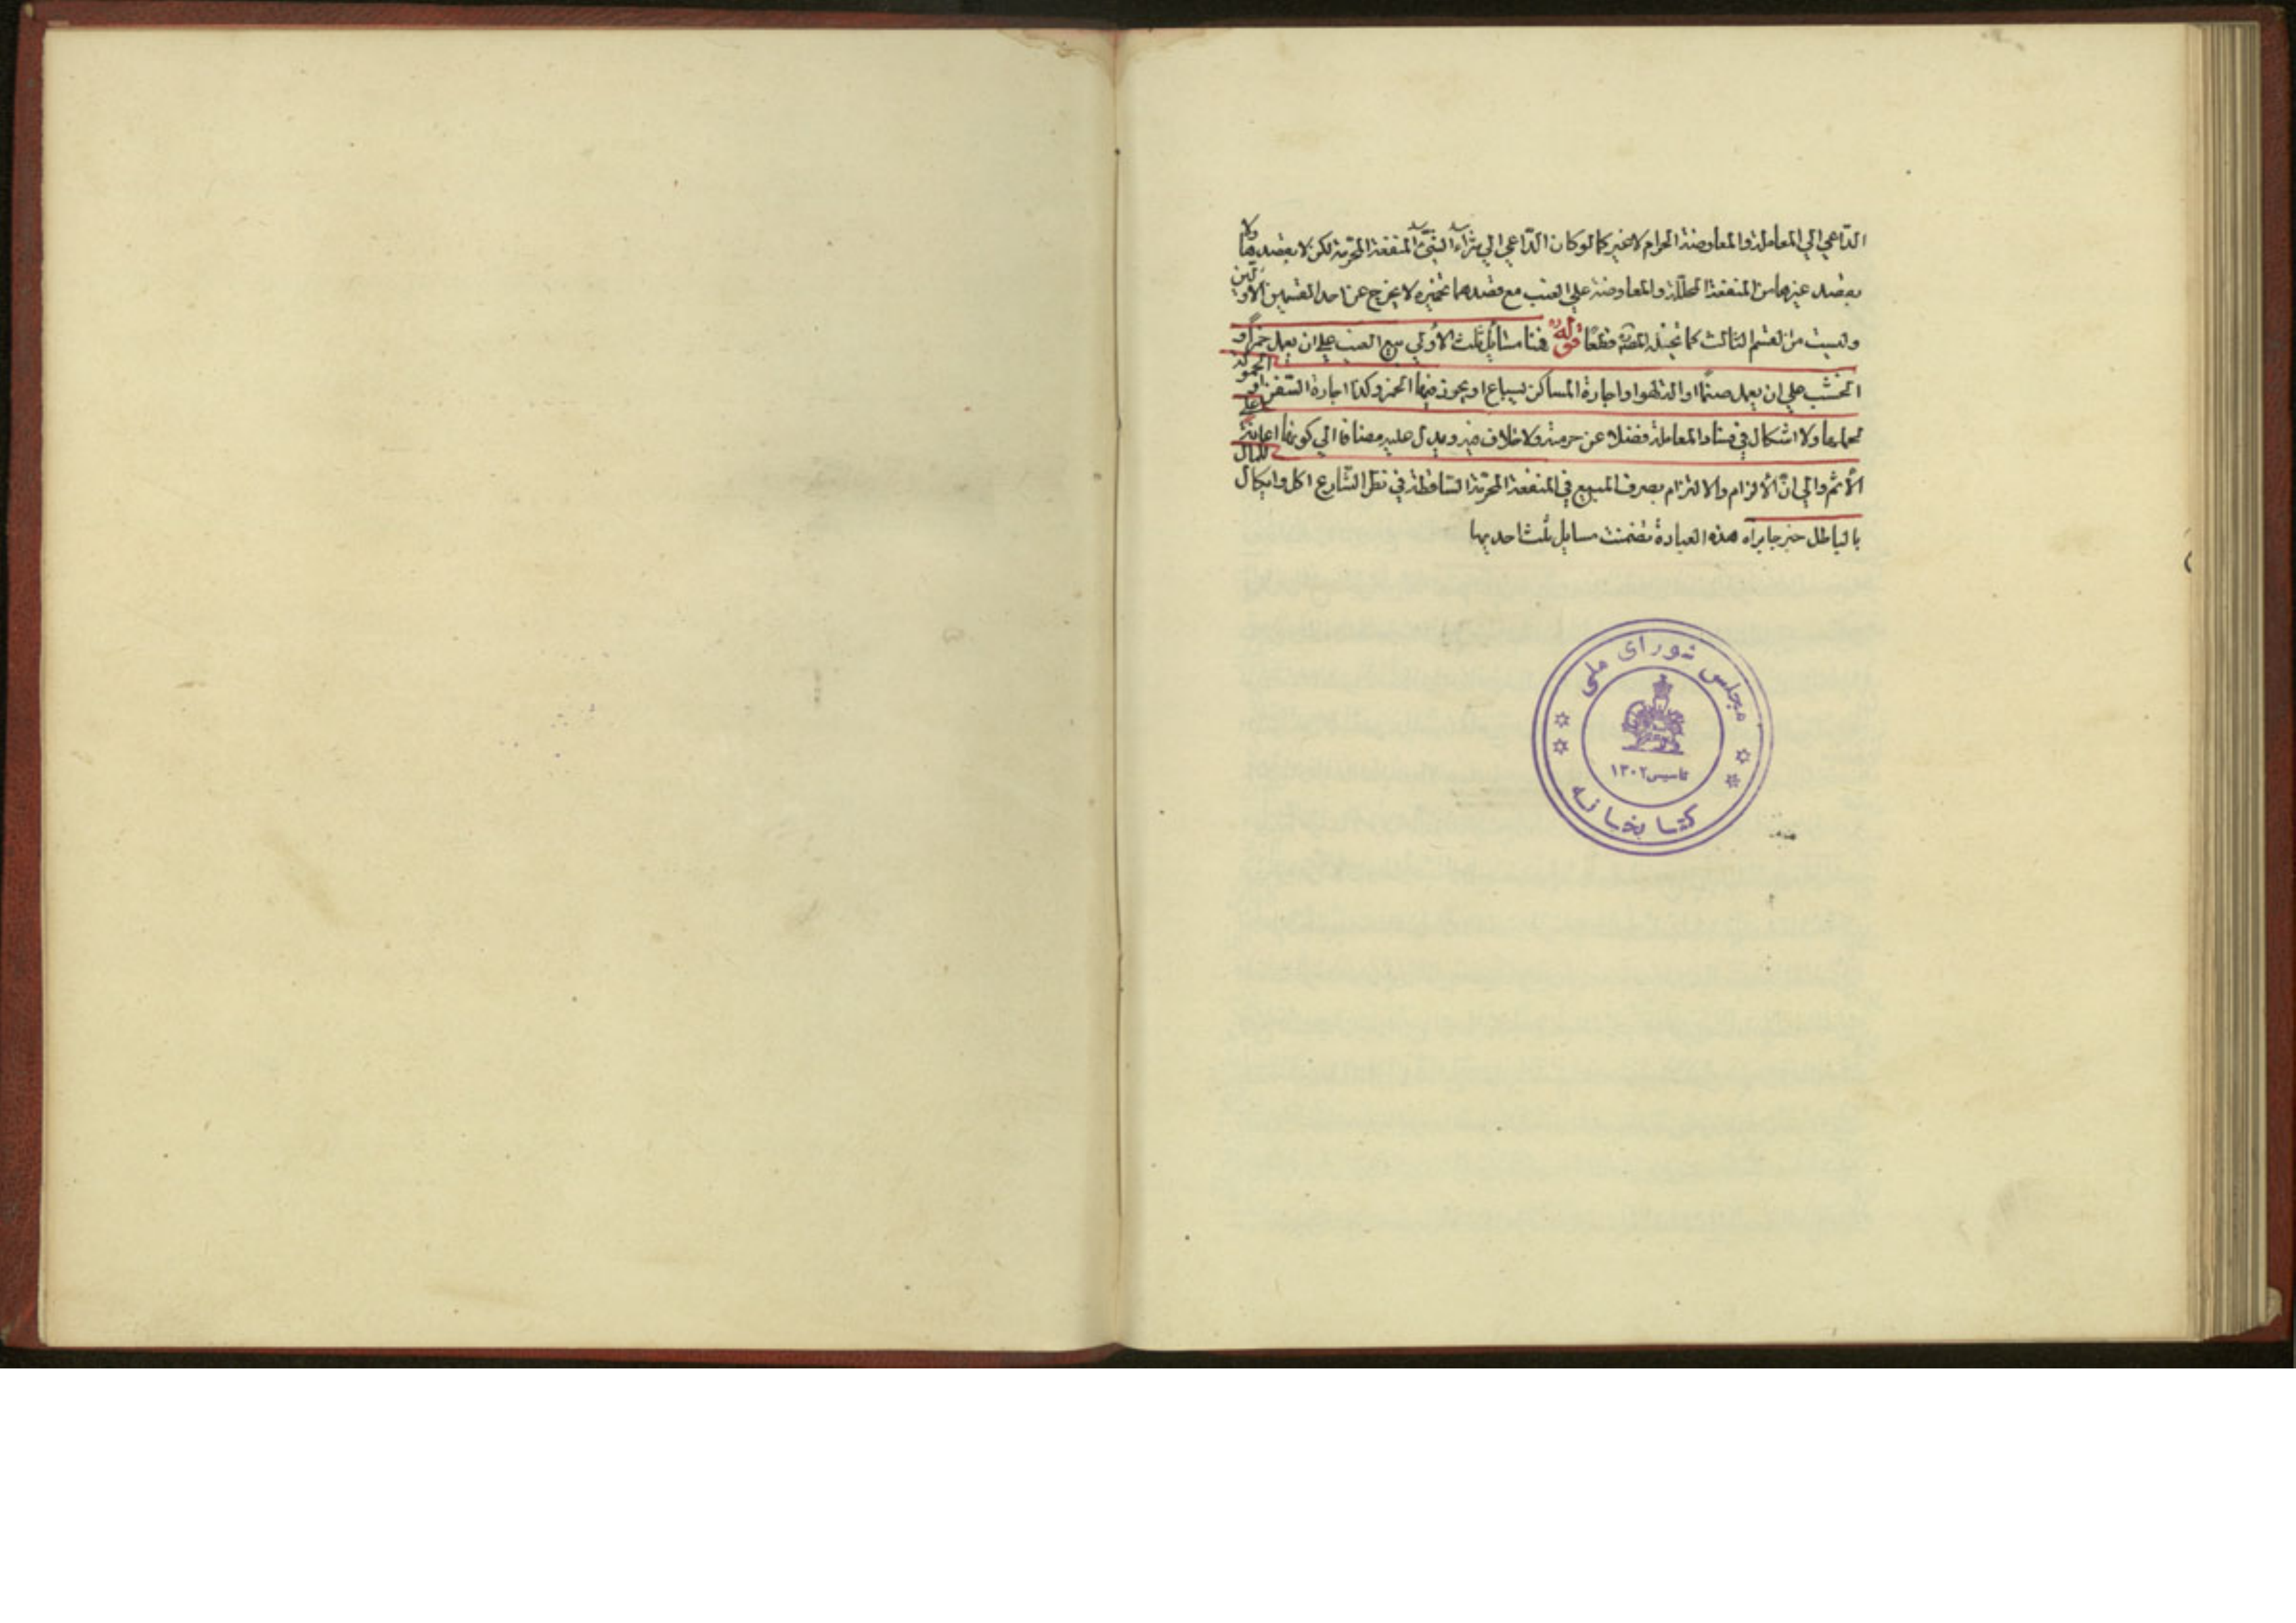 الدّاعي الي المعاملة والمعاوضة الحرام لاغير كما لو كان الدّاعي الي شراء الشئ المنفعة المحرّمة لكن لا يقصدها ولا
يقصد غيرها من المنفعة المحلّلة والمعاوضة علي العنب مع قصدهما تخميره لا يخرج عن احد القسمين الاوّلين
وليست من القسم الثالث كما تخيّله المصنّف قطعًا قوله فهنا مسائل ثلث الأولي بيع العنب علي ان يعمل خمرًا و
الخشب علي ان يعمل صنمًا او الة لهو او اجارة المساكن ليباع او يحرز فيها الخمر وكذا اجارة السّفن او الحمولة
لحملها ولا اشكال في فساد المعاملة فضلا عن حرمته ولا خلاف فيه ويدل عليه مضافا الي كونها اعانة علي
الأثم والي انّ الألزام والالتزام بصرف المبيع في المنفعة المحرّمة السّاقطة في نظر الشّارع اكل وايكال للمال
بالباطل خبر جابر اه هذه العبارة تضمنت مسايل ثلث احديها
مجلس شورای ملی
تاسیس ۱۳۰۲
کتابخانه